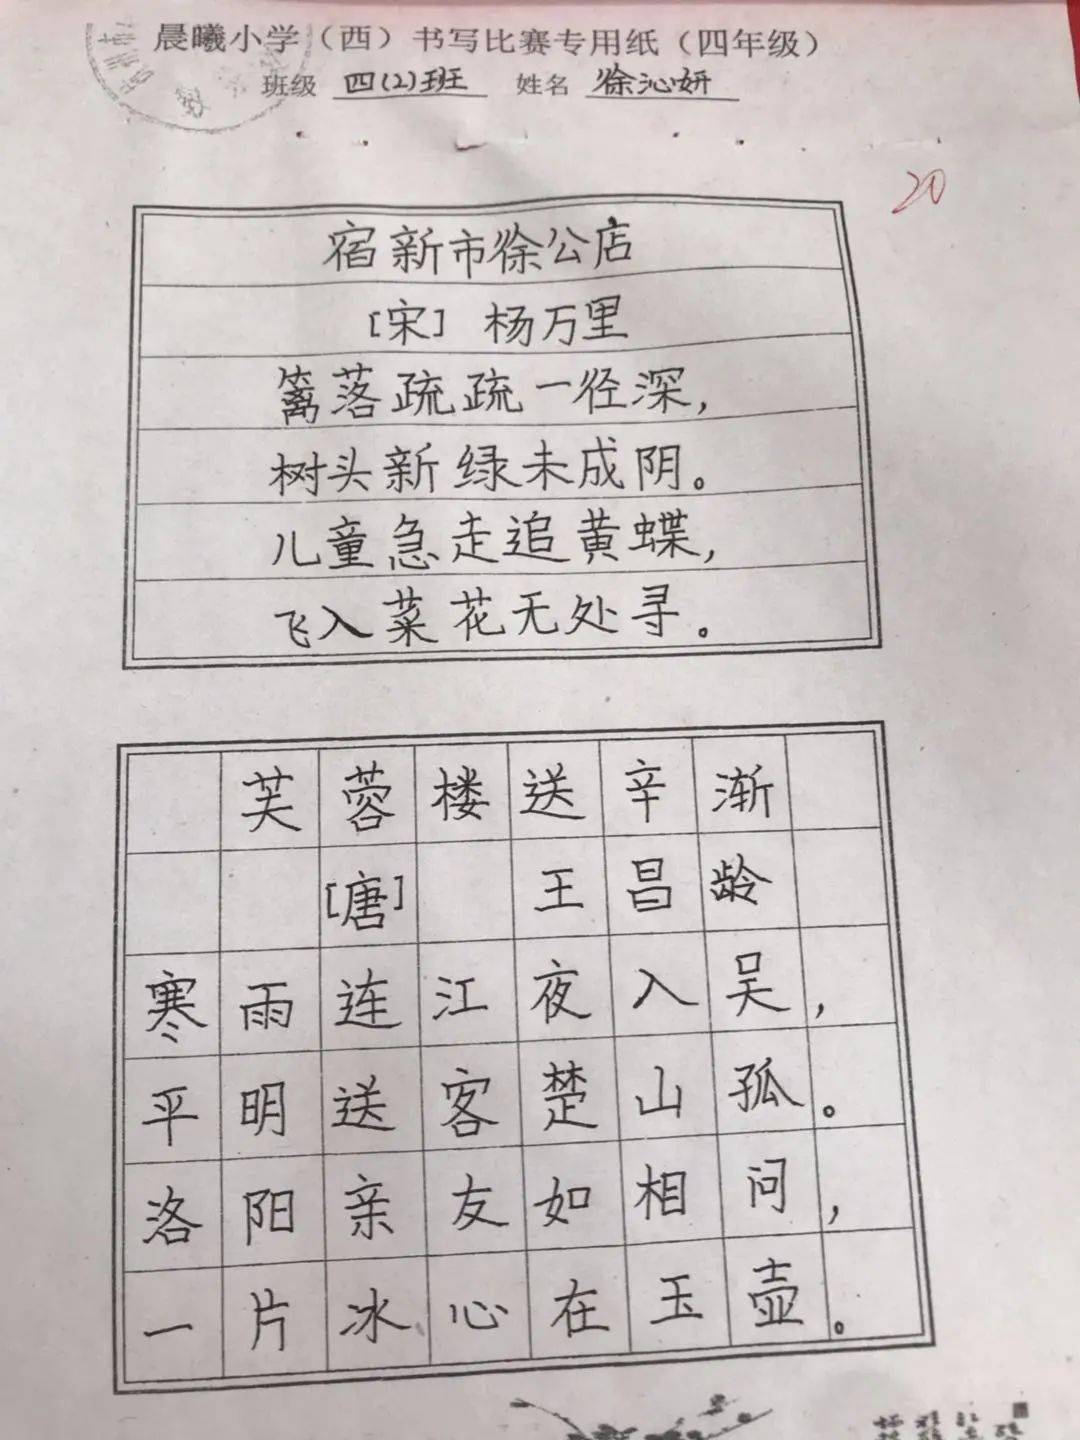 晨曦小学（西）书写比赛专用纸（四年级）
班级 四(2)班 姓名 徐沁妍
20
宿新市徐公店
[宋] 杨万里
篱落疏疏一径深，
树头新绿未成阴。
儿童急走追黄蝶，
飞入菜花无处寻。
芙蓉楼送辛渐
[唐] 王昌龄
寒雨连江夜入吴，
平明送客楚山孤。
洛阳亲友如相问，
一片冰心在玉壶。